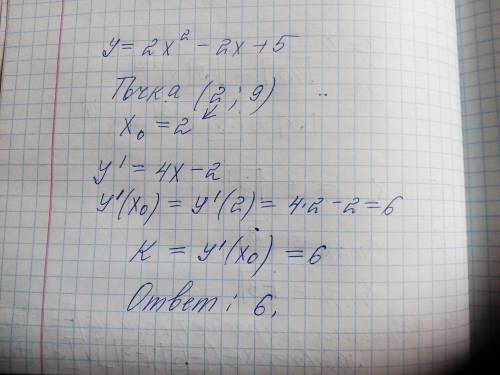 y = 2x² - 2x + 5
Точка (2; 9)
x₀ = 2
y' = 4x - 2
y'(x₀) = y'(2) = 4·2 - 2 = 6
K = y'(x₀) = 6
Ответ: 6.